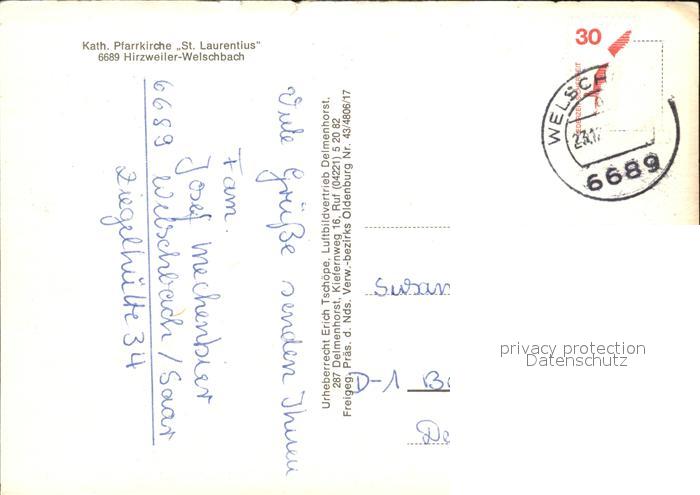 Kath. Pfarrkirche „St. Laurentius"
6689 Hirzweiler-Welschbach
Viele Grüße senden Ihnen
Fam.
Josef Mechenbier
6689 Welschbach/Saar
Ziegelhütte 34
Urheberrecht Erich Tschöpe, Luftbildvertrieb Delmenhorst,
287 Delmenhorst, Kiefernweg 16, Ruf (04221) 5 20 82
Freigeg. Präs. d. Nds. Verw.-bezirks Oldenburg Nr. 43/4806/17
30
WELSCH
6689
Susan
D-1 B
De
privacy protection
Datenschutz